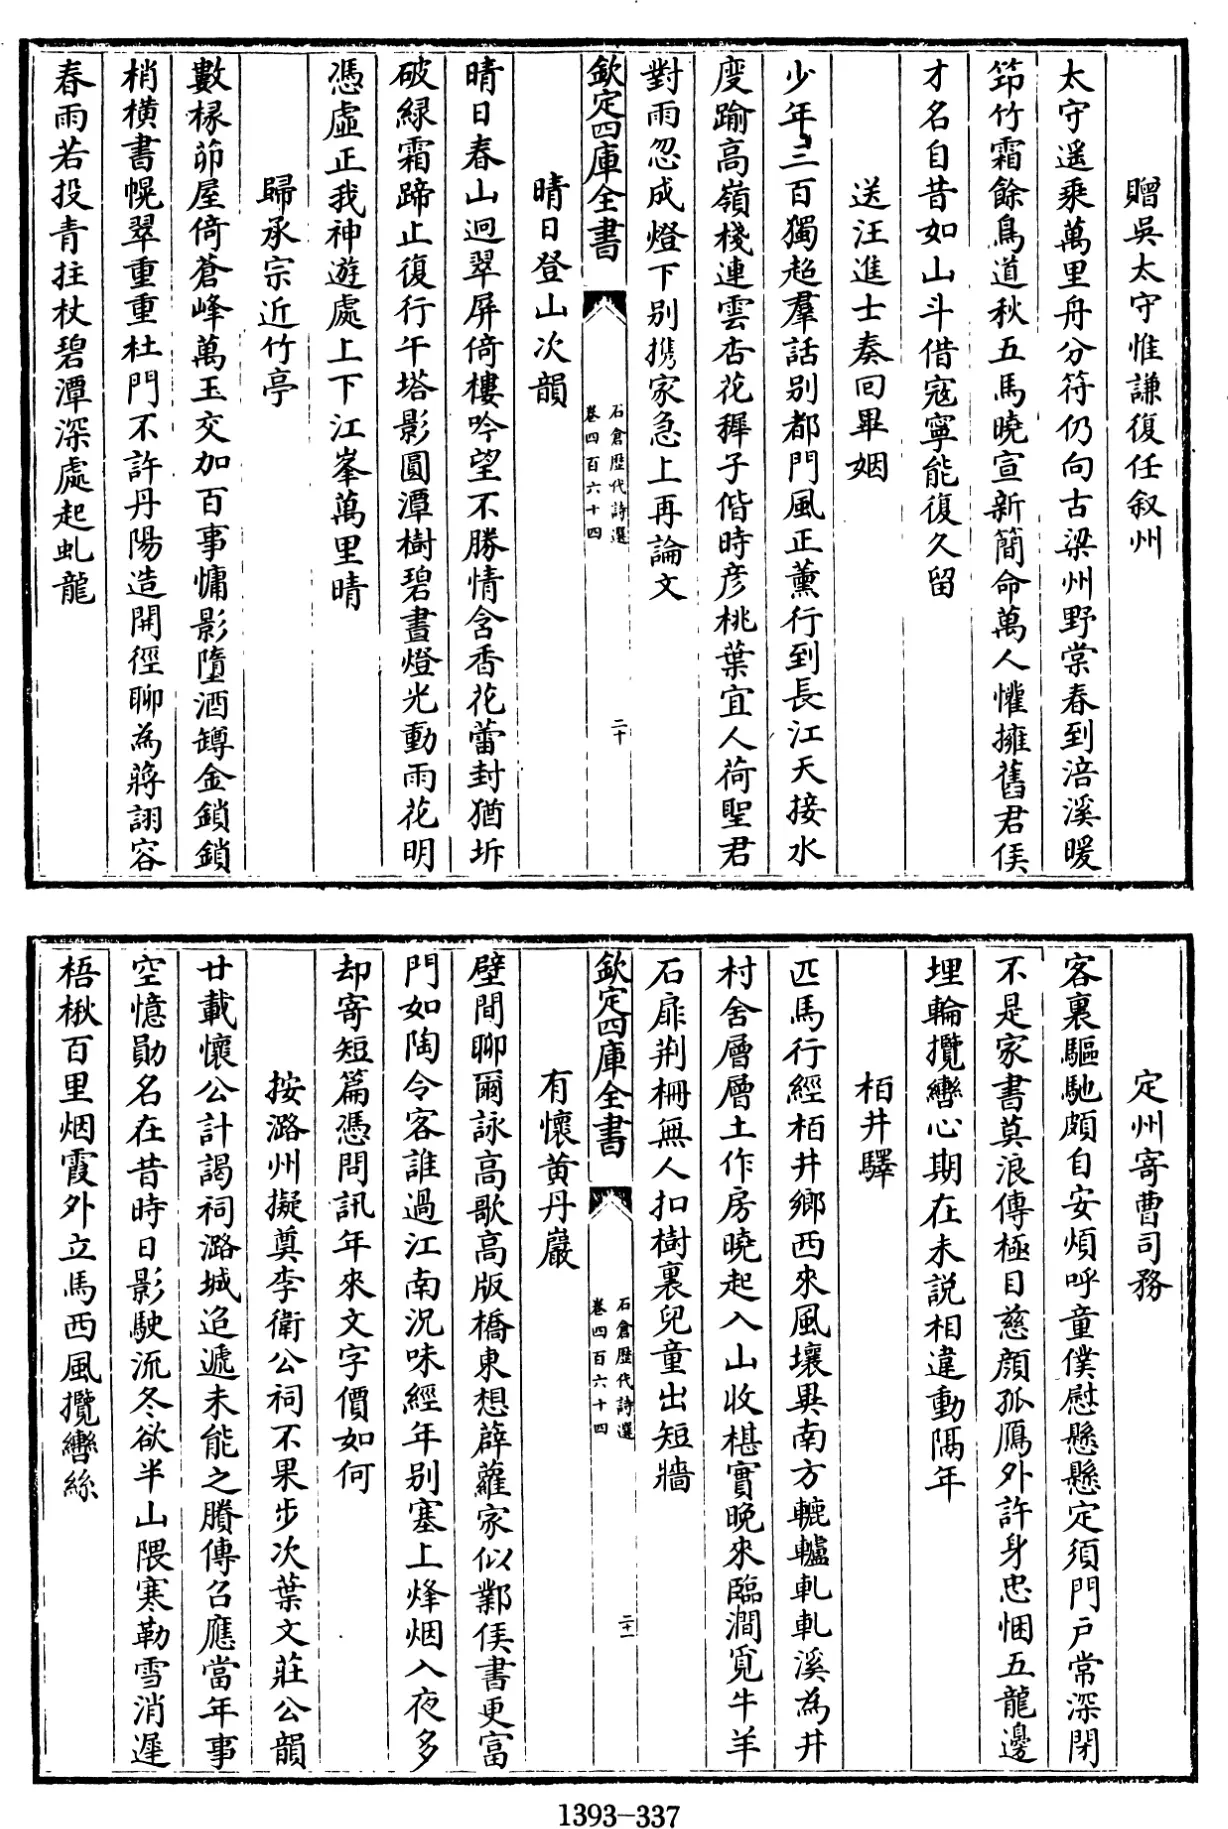 贈吳太守惟謙復任叙州
太守遥乘萬里舟分符仍向古梁州野棠春到涪溪暖
笻竹霜餘鳥道秋五馬曉宣新簡命萬人懽擁舊君侯
才名自昔如山斗借宼寧能復久留
送汪進士奏回畢姻
少年三百獨超羣話别都門風正薰行到長江天接水
度踰高嶺棧連雲杏花穉子偕時彦桃葉宜人荷聖君
對雨忽成燈下别携家急上再論文
欽定四庫全書
石倉歴代詩選
卷四百六十四
二十
晴日登山次韻
晴日春山迥翠屏倚樓吟望不勝情含香花蕾封猶坼
破緑霜蹄止復行午塔影圓潭樹碧晝燈光動雨花明
憑虛正我神遊處上下江峯萬里晴
歸承宗近竹亭
數椽茆屋倚蒼峰萬玉交加百事慵影墮酒罇金鎖鎖
梢横書幌翠重重杜門不許丹陽造開徑聊為蔣詡容
春雨若投青拄杖碧潭深處起虬龍
定州寄曹司務
客裏驅馳頗自安煩呼童僕慰懸懸定須門戸常深閉
不是家書莫浪傳極目慈顔孤鴈外許身忠悃五龍邊
埋輪攬轡心期在未説相違動隔年
栢井驛
匹馬行經栢井鄉西來風壤異南方轆轤軋軋溪為井
村舍層層土作房曉起入山收椹實晚來臨澗覓牛羊
石扉荆柵無人扣樹裏兒童出短牆
欽定四庫全書
石倉歴代詩選
卷四百六十四
二十一
有懷黄丹巖
壁間聊爾詠高歌高版橋東想薜蘿家似鄴侯書更富
門如陶令客誰過江南況味經年别塞上烽烟入夜多
却寄短篇憑問訊年來文字價如何
按潞州擬奠李衛公祠不果步次葉文莊公韻
廿載懷公計謁祠潞城迢遞未能之賸傳召應當年事
空憶勛名在昔時日影駛流冬欲半山隈寒勒雪消遲
梧楸百里烟霞外立馬西風攬轡絲
1393-337